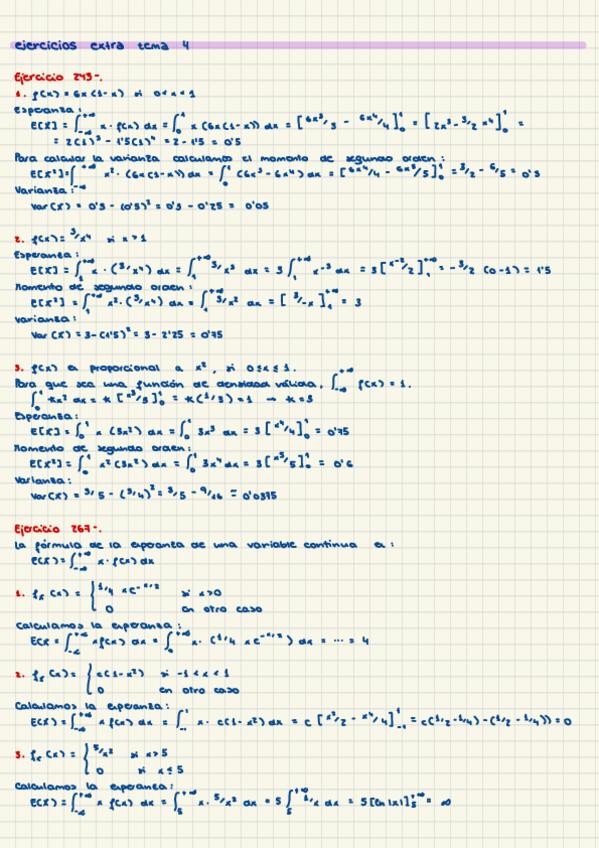 ejercicios extra tema 4
Ejercicio 243-.
1. f(x) = 6x(1-x) si 0<x<1
Esperanza:
E[X] = ∫_{-∞}^{+∞} x · f(x) dx = ∫_0^1 x (6x(1-x)) dx = [6x³/3 - 6x⁴/4]_0^1 = [2x³ - 3/2 x⁴]_0^1 =
= 2(1)³ - 1'5(1)⁴ = 2 - 1'5 = 0'5
Para calcular la varianza calculamos el momento de segundo orden:
E[X²] = ∫_{-∞}^{+∞} x² · (6x(1-x)) dx = ∫_0^1 (6x³ - 6x⁴) dx = [6x⁴/4 - 6x⁵/5]_0^1 = 3/2 - 6/5 = 0'3
Varianza:
Var(X) = 0'3 - (0'5)² = 0'3 - 0'25 = 0'05
2. f(x) = 3/x⁴ si x>1
Esperanza:
E[X] = ∫_1^{+∞} x · (3/x⁴) dx = ∫_1^{+∞} 3/x³ dx = 3 ∫_1^{+∞} x⁻³ dx = 3[x⁻²/2]_1^{+∞} = -3/2 (0-1) = 1'5
Momento de segundo orden:
E[X²] = ∫_1^{+∞} x² · (3/x⁴) dx = ∫_1^{+∞} 3/x² dx = [3/-x]_1^{+∞} = 3
Varianza:
Var(X) = 3 - (1'5)² = 3 - 2'25 = 0'75
3. f(x) es proporcional a x², si 0≤x≤1.
Para que sea una función de densidad válida, ∫_{-∞}^{+∞} f(x) = 1.
∫_0^1 kx² dx = k [x³/3]_0^1 = k(1/3) = 1 → k=3
Esperanza:
E[X] = ∫_0^1 x (3x²) dx = ∫_0^1 3x³ dx = 3[x⁴/4]_0^1 = 0'75
Momento de segundo orden:
E[X²] = ∫_0^1 x² (3x²) dx = ∫_0^1 3x⁴ dx = 3[x⁵/5]_0^1 = 0'6
Varianza:
Var(X) = 3/5 - (3/4)² = 3/5 - 9/16 = 0'0375
Ejercicio 267-.
La fórmula de la esperanza de una variable continua es:
E(X) = ∫_{-∞}^{+∞} x · f(x) dx
1. fₓ(x) = { 1/4 xe^{-x/2} si x>0
0 en otro caso
Calculamos la esperanza:
E(X = ∫_{-∞}^{+∞} x f(x) dx = ∫_0^{+∞} x · (1/4 xe^{-x/2}) dx = ... = 4
2. fₓ(x) = { c(1-x²) si -1<x<1
0 en otro caso
Calculamos la esperanza:
E(X) = ∫_{-∞}^{+∞} x f(x) dx = ∫_{-1}^1 x · c(1-x²) dx = c [x²/2 - x⁴/4]_{-1}^1 = c(1/2-1/4) - (1/2-1/4)) = 0
3. fₓ(x) = { 5/x² si x>5
0 si x≤5
Calculamos la esperanza:
E(X) = ∫_{-∞}^{+∞} x f(x) dx = ∫_5^{+∞} x · 5/x² dx = 5 ∫_5^{+∞} 1/x dx = 5[ln|x|]_5^{+∞} = ∞